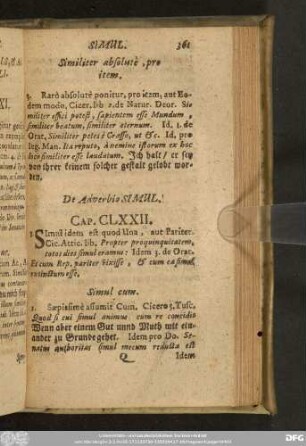 SIMUL. 361
Similiter absolutè, pro
item.
3. Rarò absolutè ponitur, pro item, aut Eo-
dem modo, Cicer. lib 2. de Natur. Deor. Si-
militer effici potest, sapientem esse Mundum,
similiter beatum, similiter æternum. Id. 1. de
Orat. Similiter petere Crasso, ut &c. Id. pro
leg. Man. Ita reputo, à nemine istorum ex hoc
loco similiter esse laudatum. Ich halt / er sey
von ihrer keinem solcher gestalt gelobt wor-
den.
De Adverbio SIMUL.
CAP. CLXXII.
1. Simul idem est quod Una, aut Pariter.
Cic. Attic. lib. Propter propinquitatem,
totos dies simul eramus: Idem 3. de Orat.
Et cum Rep. pariter vixisse, & cum ea simul
extinctum esse.
Simul cum.
1. Sæpissimè assumit Cum. Cicero 5. Tusc.
Quod si cui simul animus cum re concidit
Wenn aber einem Gut unnd Muth mit ein-
ander zu Grunde gehet. Idem pro Do. Se-
natus authoritas simul mecum reducta est
Q Idem